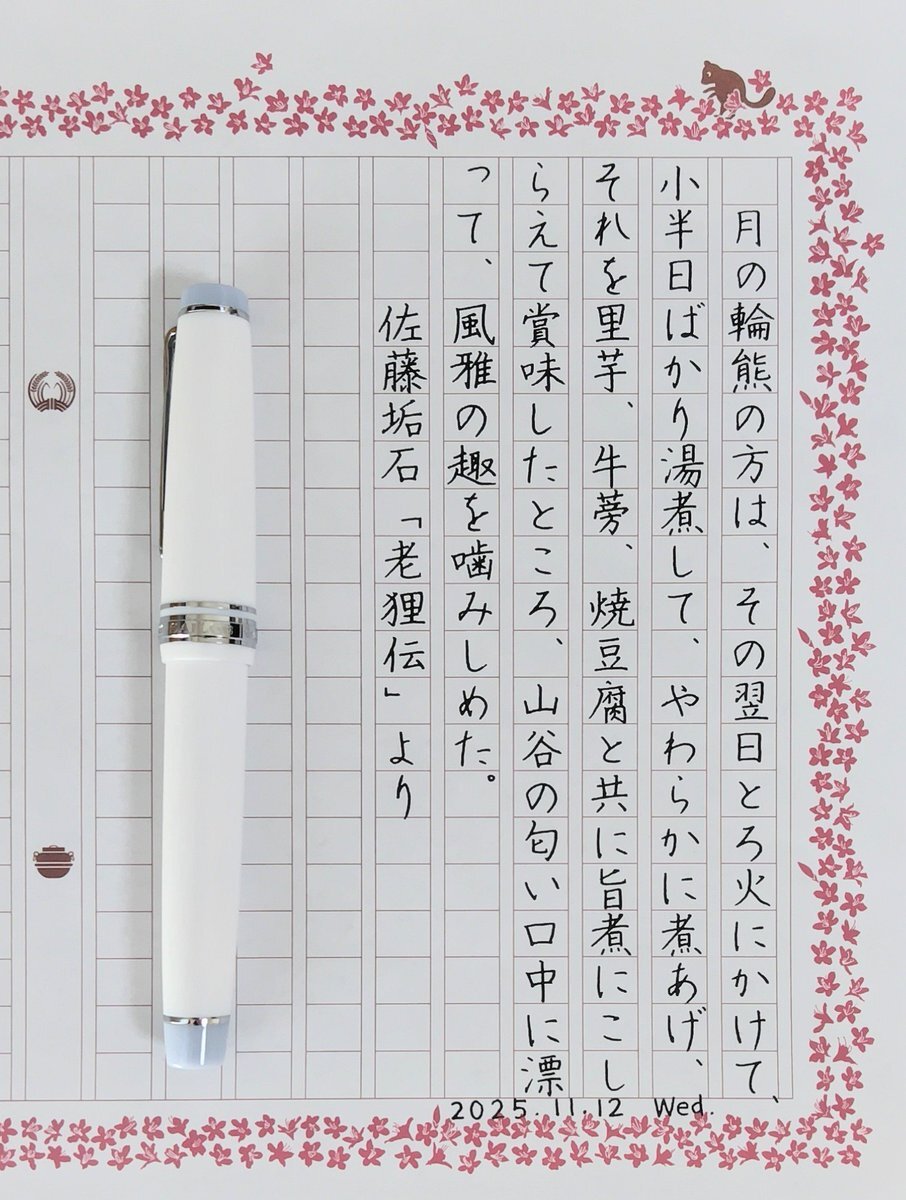 月の輪熊の方は、その翌日とろ火にかけて、
小半日ばかり湯煮して、やわらかに煮あげ、
それを里芋、牛蒡、焼豆腐と共に旨煮にこし
らえて賞味したところ、山谷の匂い口中に漂
って、風雅の趣を噛みしめた。
佐藤垢石「老狸伝」より
2025.11.12 Wed.